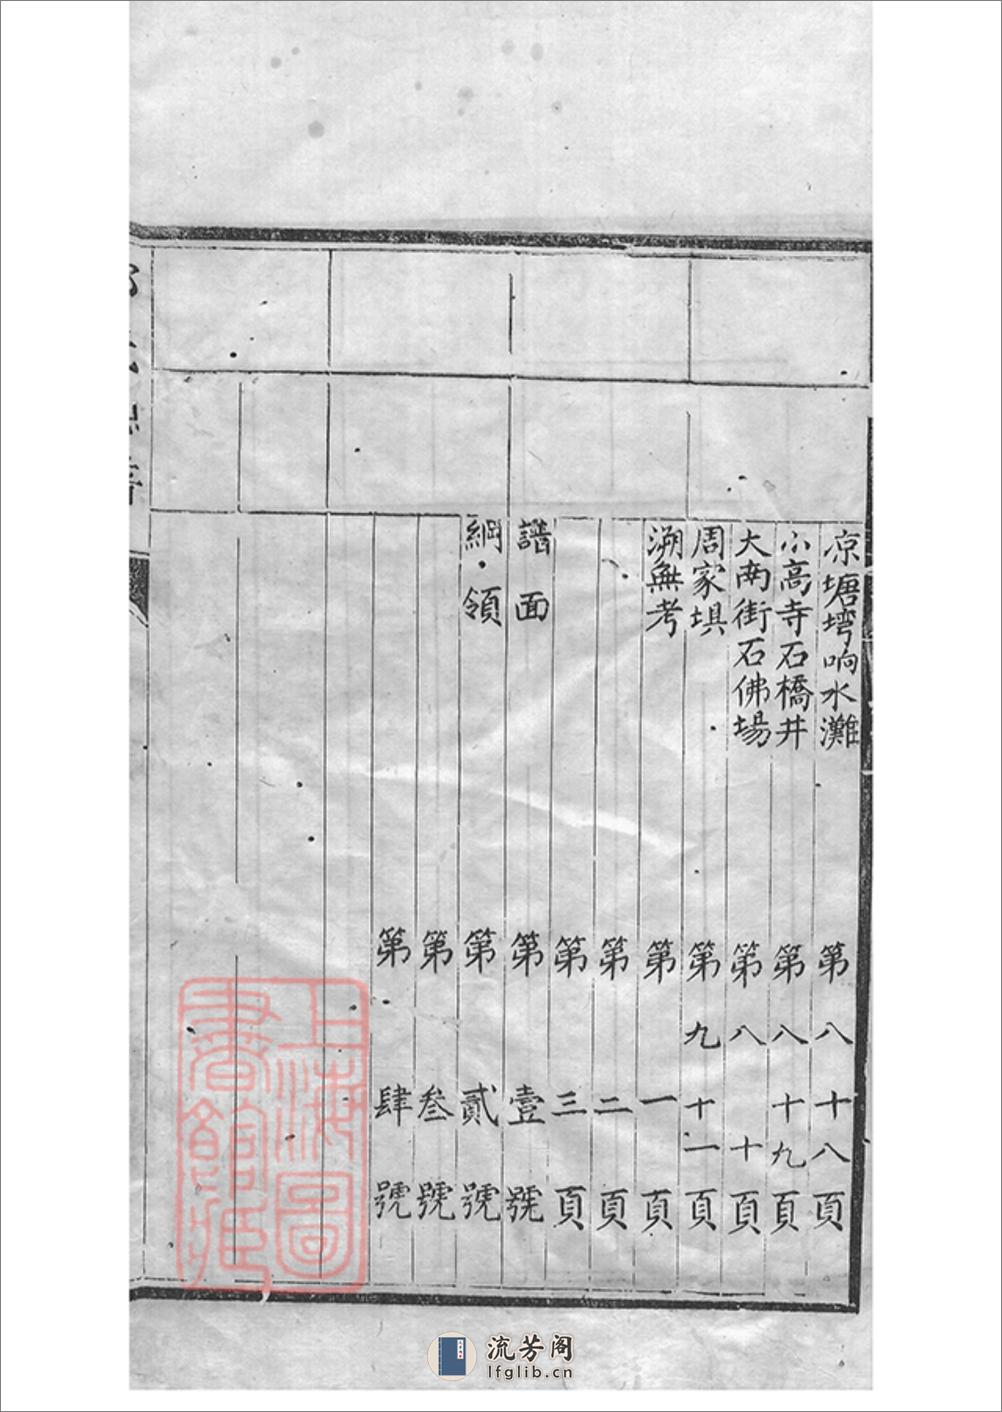 凉塘塆响水灘　第八十八頁
小高寺石橋井　第八十九頁
大南街石佛場　第八十頁
周家垻　第九十一頁
溯無考　第一頁
第二頁
第三頁
譜面　第壹號
綱領　第貳號
第叁號
第肆號
上海圖書館藏
流芳阁
lfglib.cn